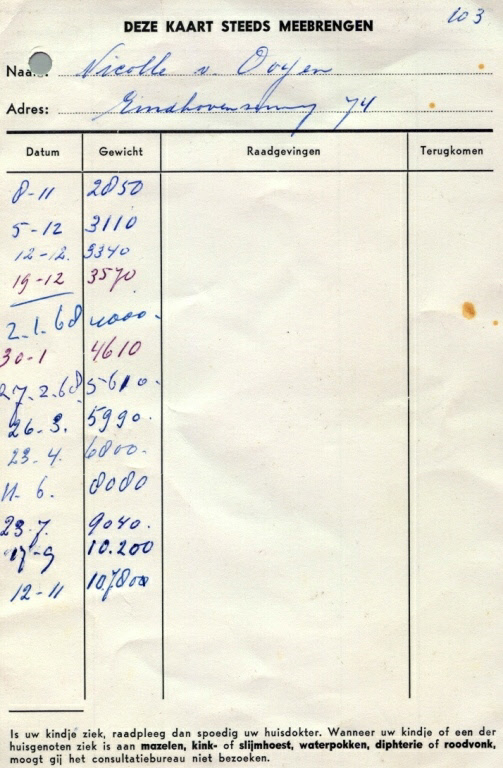 103
DEZE KAART STEEDS MEEBRENGEN
Naam: Nicolle v. Ooyen
Adres: Eindhovenseweg 74
Datum Gewicht Raadgevingen Terugkomen
8-11 2850
5-12 3110
12-12. 3340
19-12 3570
2.1.68 4000.
30-1 4610
27.2.68 5610.
26.3. 5990.
23.4. 6800.
11.6. 8080
23.7. 9040.
17-9 10.200
12-11 10.800
Is uw kindje ziek, raadpleeg dan spoedig uw huisdokter. Wanneer uw kindje of een der
huisgenoten ziek is aan mazelen, kink- of slijmhoest, waterpokken, diphterie of roodvonk,
moogt gij het consultatiebureau niet bezoeken.